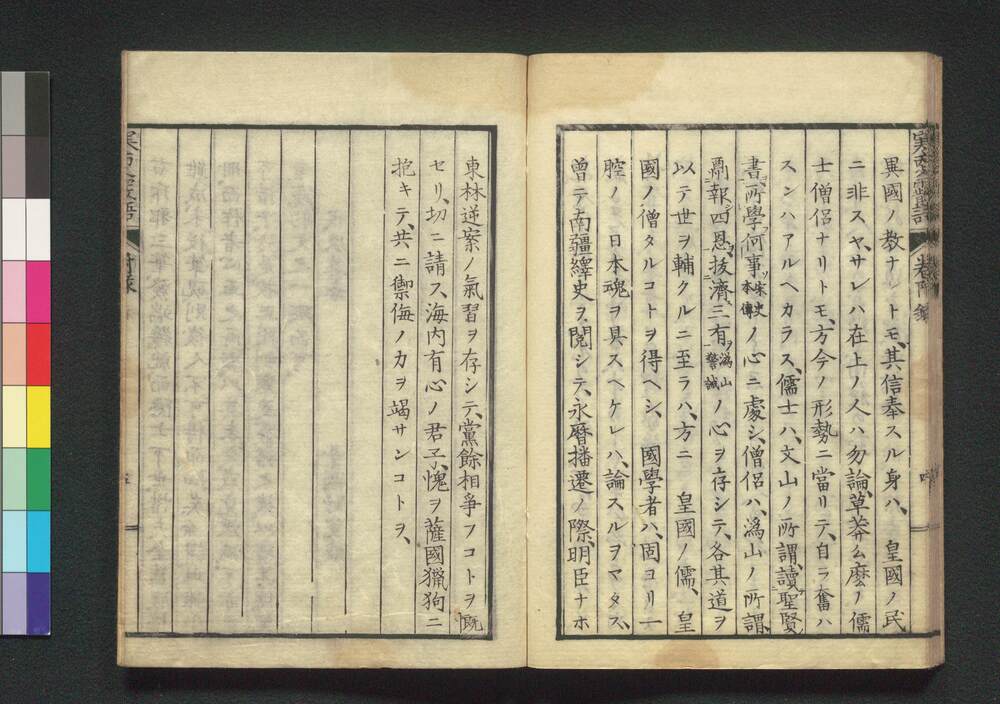 異國ノ教ナリトモ、其信奉スル身ハ、　皇國ノ民
ニ非スヤ、サレハ在上ノ人ハ勿論、草莽么麼ノ儒
士僧侶ナリトモ、方今ノ形勢ニ當リテ、自ラ奮ハ
スンハアルヘカラス、儒士ハ、文山ノ所謂、讀聖賢
書、所學何事宋史本傳ノ心ニ處シ、僧侶ハ、潙山ノ所謂、
酬報四恩、拔濟三有潙山警誡ノ心ヲ存シテ、各其道ヲ
以テ世ヲ輔クルニ至ラハ、方ニ　皇國ノ儒、皇
國ノ僧タルコトヲ得ヘシ、　國學者ハ、固ヨリ一
腔ノ　日本魂ヲ具スヘケレハ、論スルヲマタス、
曾テ南疆繹史ヲ閱シテ、永曆播遷ノ際、明臣ナホ
東林逆案ノ氣習ヲ存シテ、黨餘相爭フコトヲ既
セリ、切ニ請ス、海内有心ノ君子、愧ヲ薩國獵狗ニ
抱キテ、共ニ禦侮ノ力ヲ竭サンコトヲ、